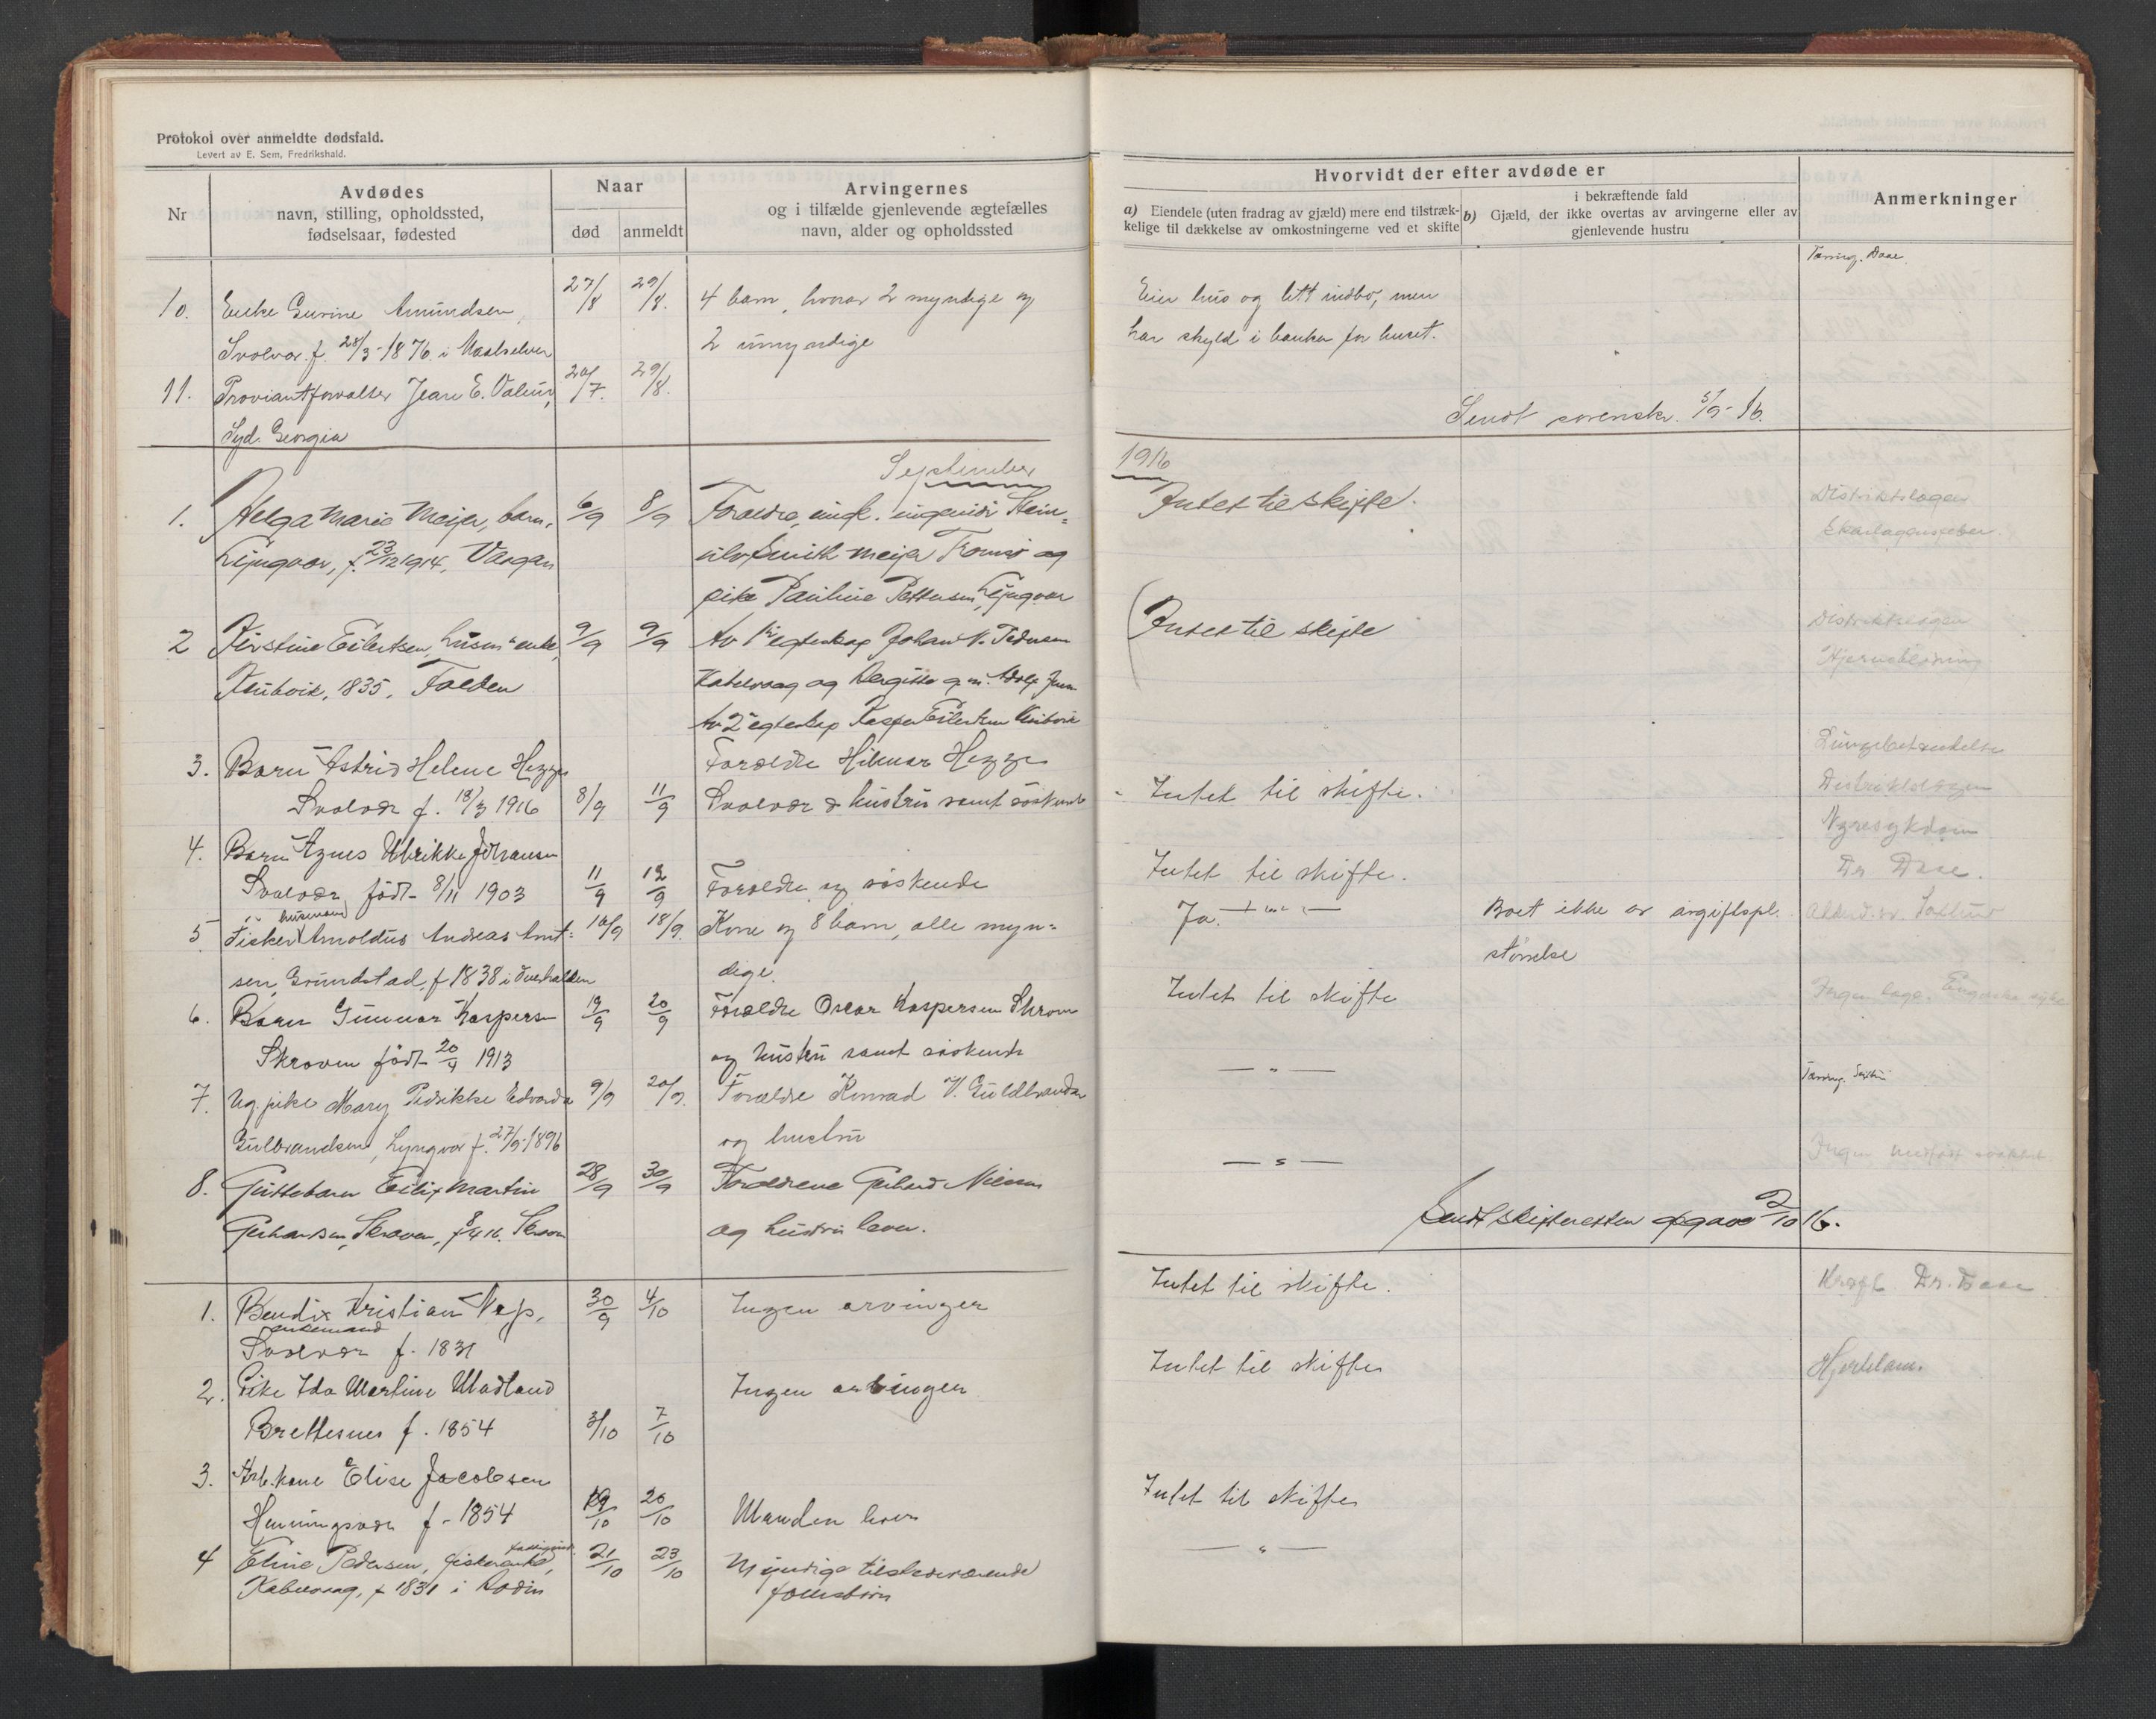 Protokol over anmeldte dødsfald.
Levert av E. Sem, Fredrikshald.
Nr
Avdødes
navn, stilling, opholdssted,
fødselsaar, fødested
Naar
død
anmeldt
Arvingernes
og i tilfælde gjenlevende ægtefælles
navn, alder og opholdssted
10. Enke Gurine Amundsen, 27/8 29/8. 4 barn, hvorav 2 myndige og
Svolvær. f. 28/3-1876. i Maalselven 2 umyndige
11. Proviantforvalter Jean E. 20/7. 29/8.
Syd. Georgia
September
1. Helga Marie Meijer, barn, 6/9 8/9 Foræeldre, ungk. ingeniør Stein=
Lyngvær, f. 23/12 1914, Vaagan Meijer Tromsø og
pike Pauline Pettersen, Lyngvær
2 Kirstine Eilertsen, husm. enke, 9/9 9/9 Av 1ste egteskap Johan N. Pedersen
1835, Folden Kabelvaag og
Av 2 egteskap Kasper Eilertsen
3. Barn Astrid Helene Hegge Forældre Hilmar Hegge
Svolvær f. 18/3 1916 8/9 11/9 Svolvær & hustru samt søskende
4. Barn Agnes Ulrikke Johansen
Svolvær, født 8/11 1903 11/9 12/9 Forældre og søskende
husmand
5 Fisker Arnoldus Andreas Arnt= 16/9 18/9. Kone og 8 barn, alle myn=
sen, Grundstad, f 1838 i Overhalden dige.
6. Barn Gunnar Kaspersen 19/9 20/9 Forældre Oscar Kaspersen Skroven
Skroven født 20/9 1913 og hustru samt søskende
7. Ug. pike Mary Pedrikke Edvarda 9/9 20/9. Forældre Konrad V. Guldbrandsen
Gulbrandsen, Lyngvær f. 27/9-1896 og hustru
8. Guttebarn Eilif Martin 28/9 30/9 Forældrene Gerhard Nielsen
Gerhardsen, Skroven, Skroven og hustru lever.
1. Bendix Kristian 30/9 4/10 Ingen arvinger
enkemand
Svolvær f. 1831
2. Pike Ida Martine Madland Ingen arvinger
Brettesnes f. 1854 3/10 7/10
3. Arb. kone Elise Jacobsen
Henningsvær f. 1854 19/10 20/10 Manden lever
4 Eline Pedersen, fiskerenke, 21/10 23/10 Myndige tilstedeværende
Kabelvaag, f 1831 i Bodin fællesbørn
Hvorvidt der efter avdøde er
a) Eiendele (uten fradrag av gjæld) mere end tilstræk-
kelige til dækkelse av omkostningerne ved et skifte
i bekræftende fald
b) Gjæld, der ikke overtas av arvingerne eller av
gjenlevende hustru
Anmerkninger
Tæring. Daae.
Eier hus og litt indbo, men
har skyld i banken for huset.
Sendt sorenskr. 5/9-16.
1916
Intet til skifte. Distriktslægen
Skarlagensfeber
Intet til skifte Distriktslægen
Hjerneblødning
Lungebetændelse
Intet til skifte. Distriktslægen
Nyresykdom
Intet til skifte. Dr Daae.
Ja. Boet ikke av avgiftspl.
størrelse
Intet til skifte Ingen læge. Engelske syke
— " — Tæring.
— " — Ingen
Sendt skifteretten opgave 2/10 16.
Intet til skifte. Kræft Dr. Daae
Intet til skifte Hjertelam.
Intet til skifte
— " —